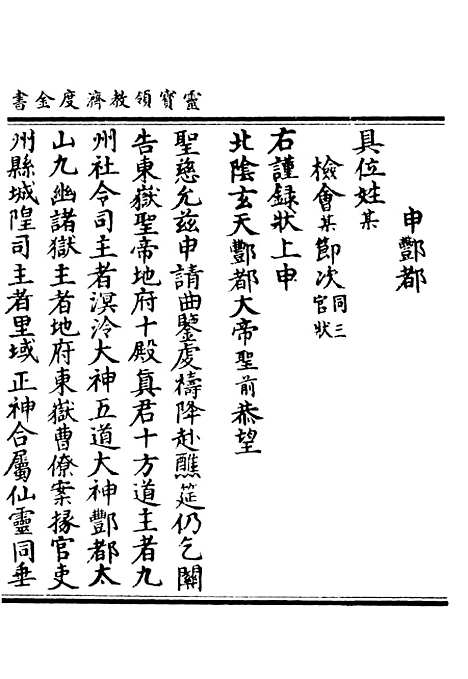 靈寶領教濟度金書
申酆都
具位姓某
檢會某節次同三官狀
右謹録狀上申
北陰玄天酆都大帝聖前恭望
聖慈允兹申請曲鑒虔禱降赴醮筵仍乞關
告東嶽聖帝地府十殿真君十方道主者九
州社令司主者溟泠大神五道大神酆都太
山九幽諸獄主者地府東嶽曹僚案掾官吏
州縣城隍司主者里域正神合屬仙靈同垂